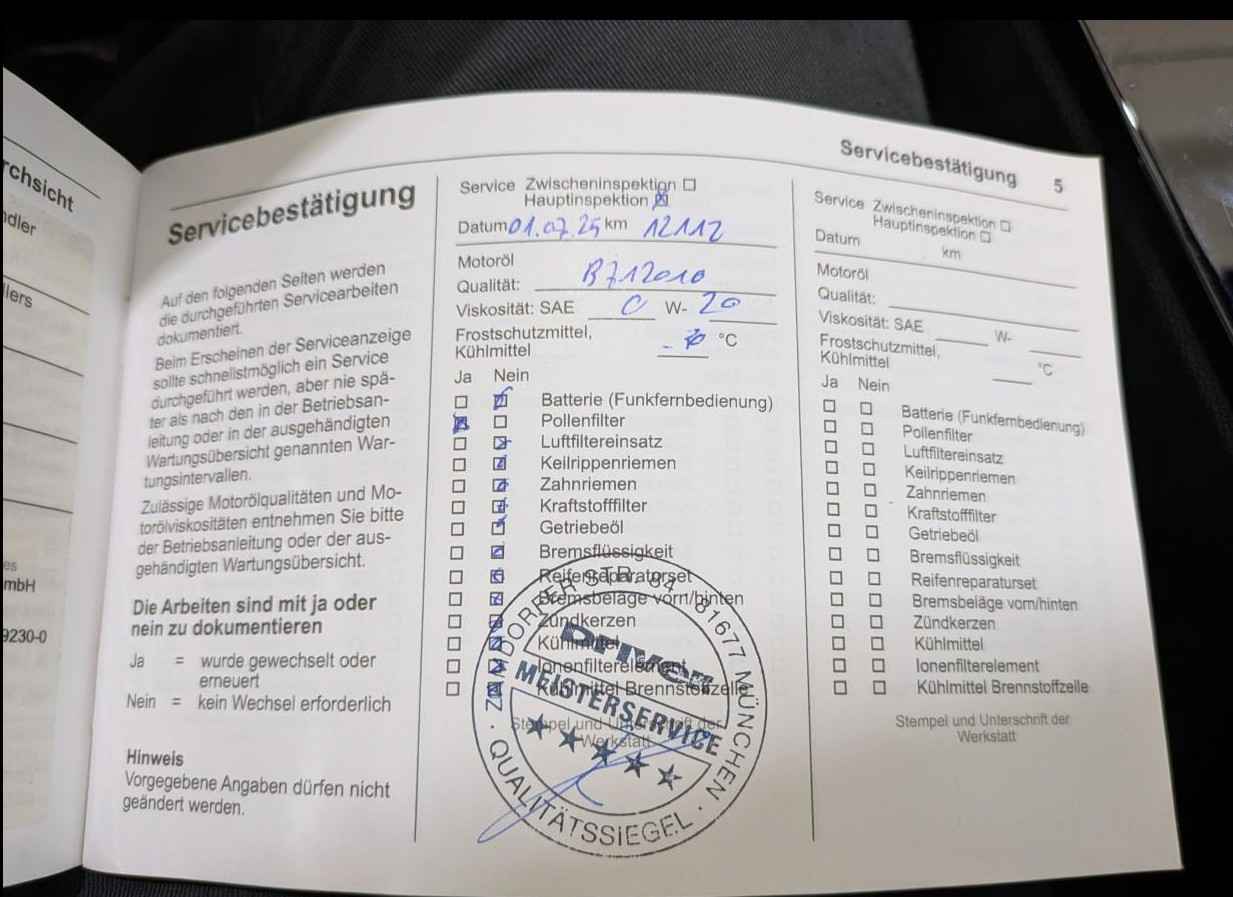 rchsicht
dler
llers
es
mbH
9230-0
Servicebestätigung 5
Servicebestätigung
Auf den folgenden Seiten werden
die durchgeführten Servicearbeiten
dokumentiert.
Beim Erscheinen der Serviceanzeige
sollte schnellstmöglich ein Service
durchgeführt werden, aber nie spä-
ter als nach den in der Betriebsan-
leitung oder in der ausgehändigten
Wartungsübersicht genannten War-
tungsintervallen.
Zulässige Motorölqualitäten und Mo-
torölviskositäten entnehmen Sie bitte
der Betriebsanleitung oder der aus-
gehändigten Wartungsübersicht.
Die Arbeiten sind mit ja oder
nein zu dokumentieren
Ja = wurde gewechselt oder
erneuert
Nein = kein Wechsel erforderlich
Hinweis
Vorgegebene Angaben dürfen nicht
geändert werden.
Service Zwischeninspektion
Hauptinspektion
Datum 01.07.25 km 12112
Motoröl
Qualität: B712010
Viskosität: SAE 0 W- 20
Frostschutzmittel,
Kühlmittel - °C
Ja Nein
Batterie (Funkfernbedienung)
Pollenfilter
Luftfiltereinsatz
Keilrippenriemen
Zahnriemen
Kraftstofffilter
Getriebeöl
Bremsflüssigkeit
Reifenreparaturset
Bremsbeläge vorn/hinten
Zündkerzen
Kühlmittel
Ionenfilterelement
Kühlmittel Brennstoffzelle
Stempel und Unterschrift der
Werkstatt
ZAMDORFER STR. 81677 MÜNCHEN
MEISTERSERVICE
QUALITÄTSSIEGEL
Service Zwischeninspektion
Hauptinspektion
Datum km
Motoröl
Qualität:
Viskosität: SAE W-
Frostschutzmittel,
Kühlmittel °C
Ja Nein
Batterie (Funkfernbedienung)
Pollenfilter
Luftfiltereinsatz
Keilrippenriemen
Zahnriemen
Kraftstofffilter
Getriebeöl
Bremsflüssigkeit
Reifenreparaturset
Bremsbeläge vorn/hinten
Zündkerzen
Kühlmittel
Ionenfilterelement
Kühlmittel Brennstoffzelle
Stempel und Unterschrift der
Werkstatt